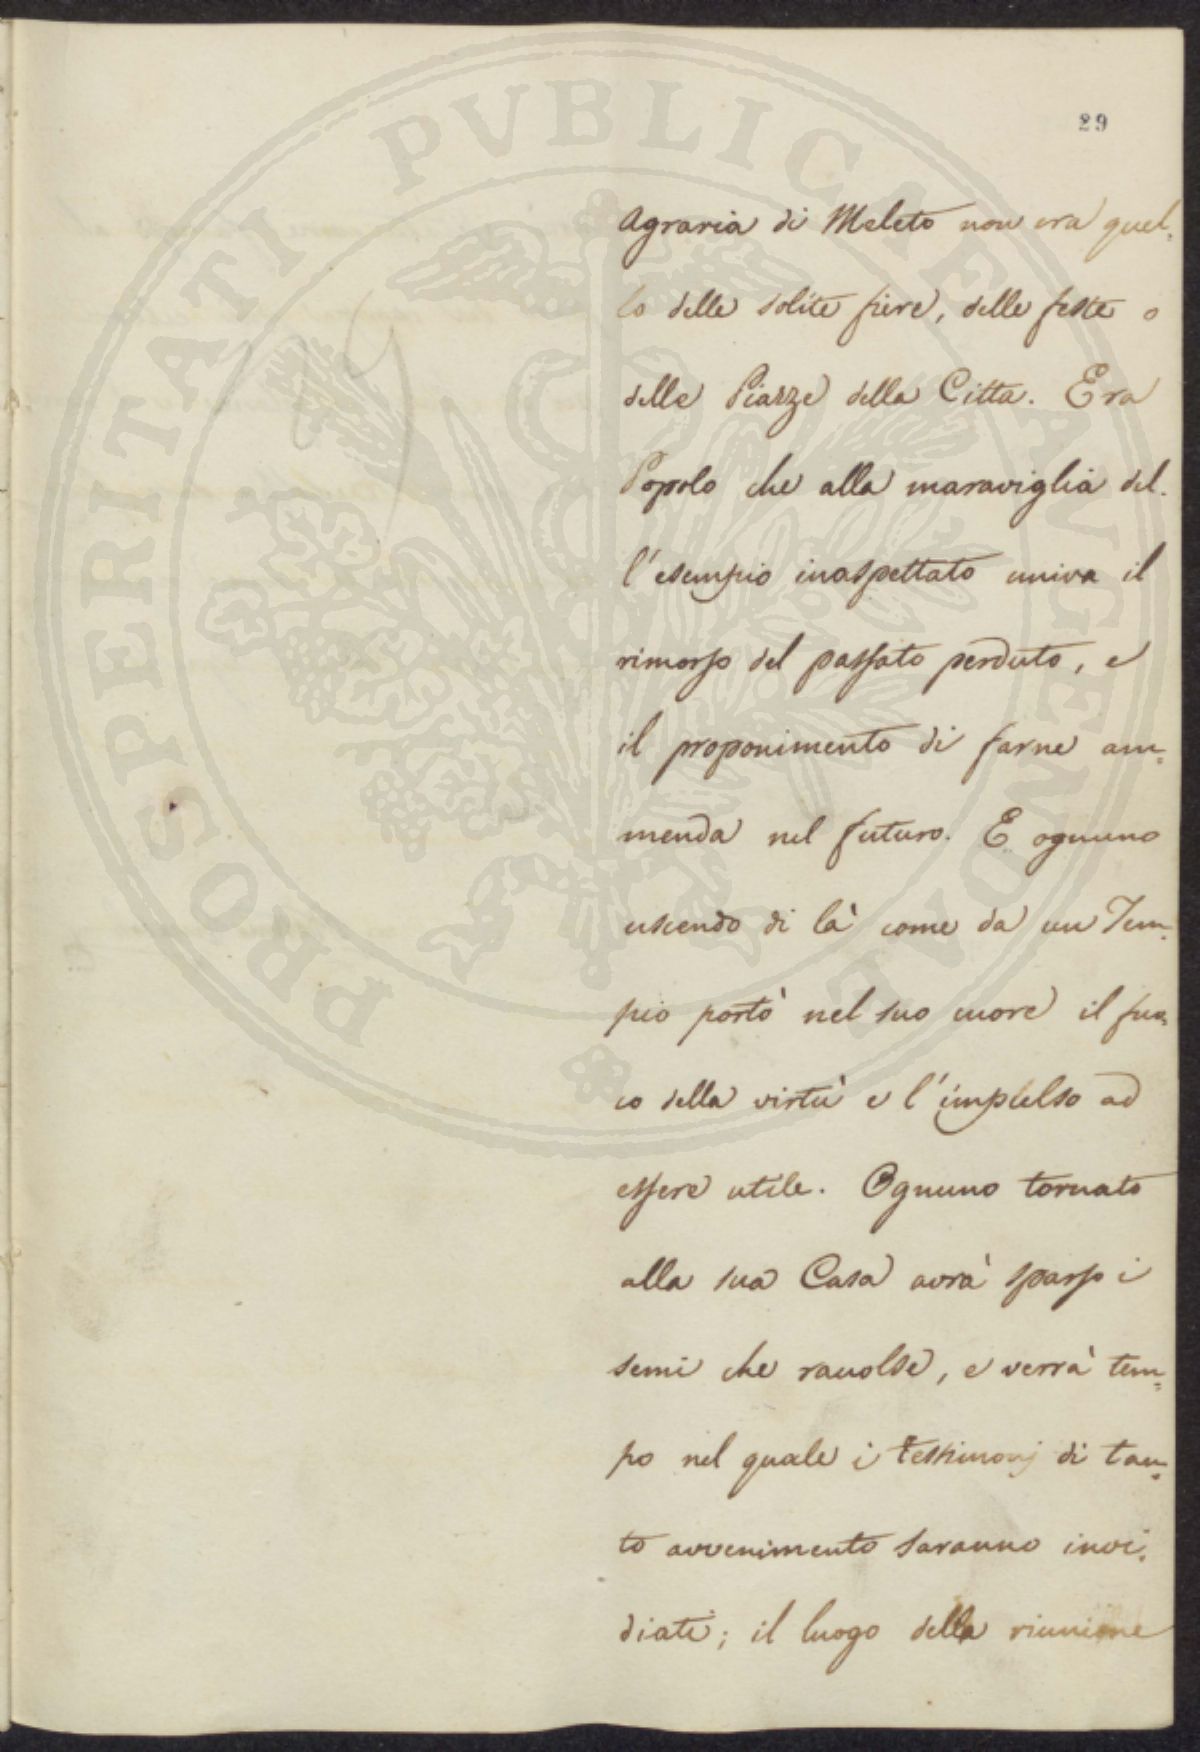 PROSPERITATI PVBLICAE AVGENDAE
29
Agraria di Meleto non era quel-
lo delle solite fiere, delle feste o
delle Piazze della Citta. Era
Popolo che alla maraviglia del-
l'esempio inaspettato univa il
rimorso del passato perduto, e
il proponimento di farne am-
menda nel futuro. E ognuno
uscendo di là come da un Tem-
pio portò nel suo cuore il fuo-
co della virtù e l'impulso ad
essere utile. Ognuno tornato
alla sua Casa avrà sparso i
semi che racolse, e verrà tem-
po nel quale i testimonj di tan-
to avvenimento saranno invi-
diati; il luogo della riunione